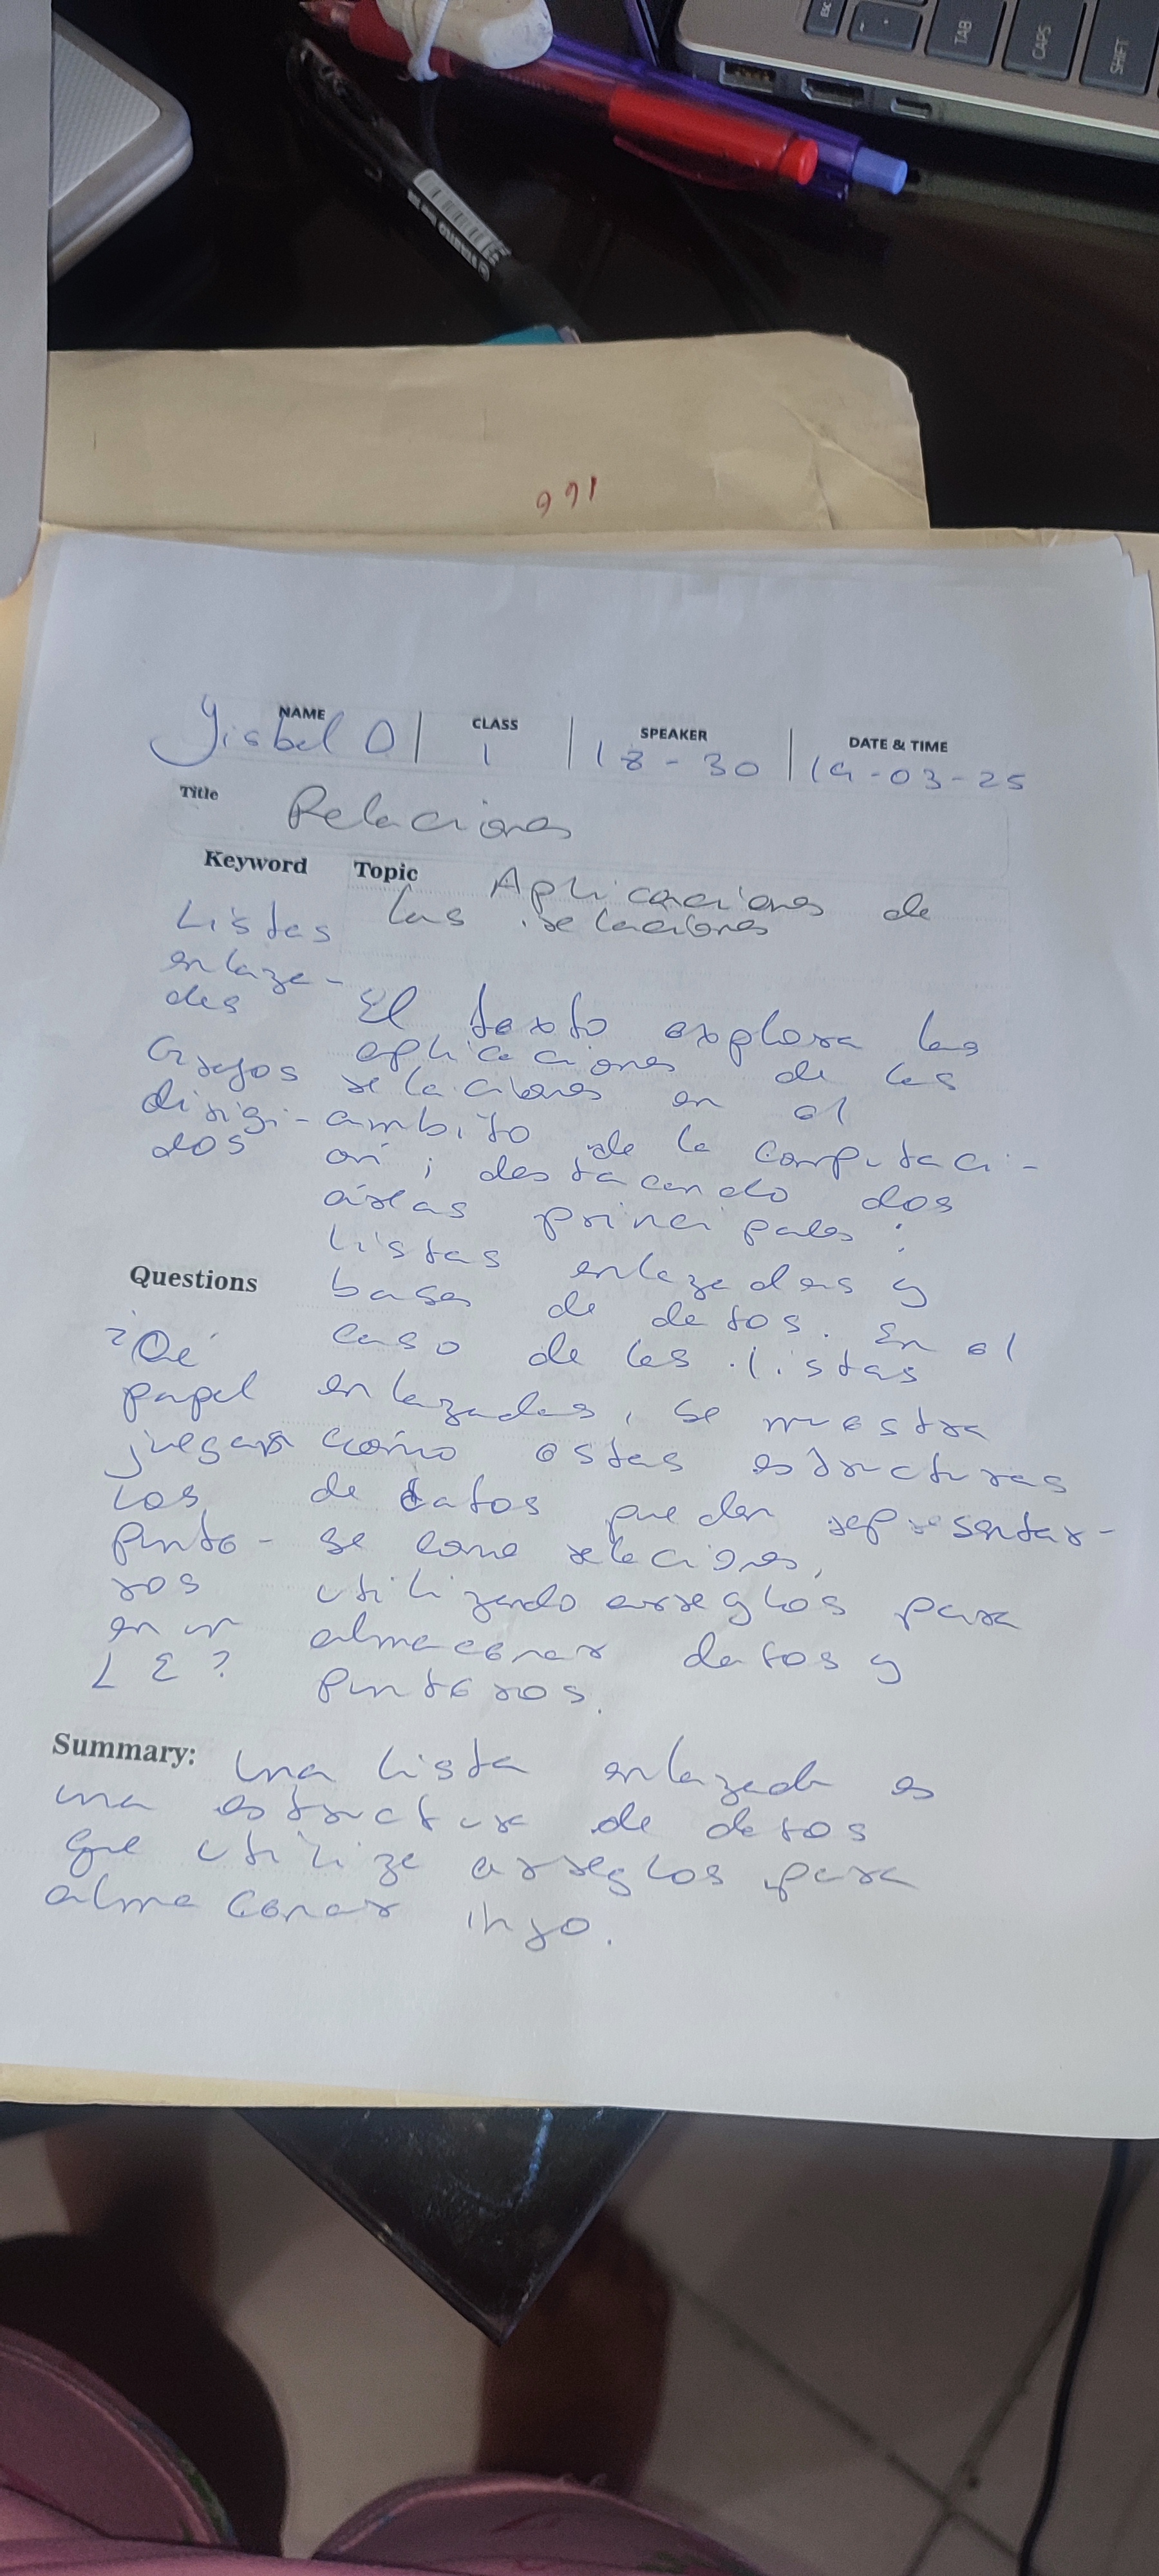 ESC
TAB
CAPS
SHIFT
166
NAME CLASS SPEAKER DATE & TIME
Yisbel D | 1 | 18-30 | 19-03-25
Title Relaciones
Keyword Topic Aplicaciones de
las relaciones
Listas
enlaza-
das
Grafos
dirigi-
dos
El texto explora las
aplicaciones de las
relaciones en el
ambito de la computaci-
ón, destacando dos
áreas principales:
listas enlazadas y
bases de datos. En el
caso de las listas
enlazadas, se muestra
cómo estas estructuras
de datos pueden representar-
se como relaciones,
utilizando arreglos para
almacenar datos y
punteros.
Questions
¿Qué
papel
juegan
los
punte-
ros
en un
LE?
Summary: Una lista enlazada es
una estructura de datos
que utiliza arreglos para
almacenar info.